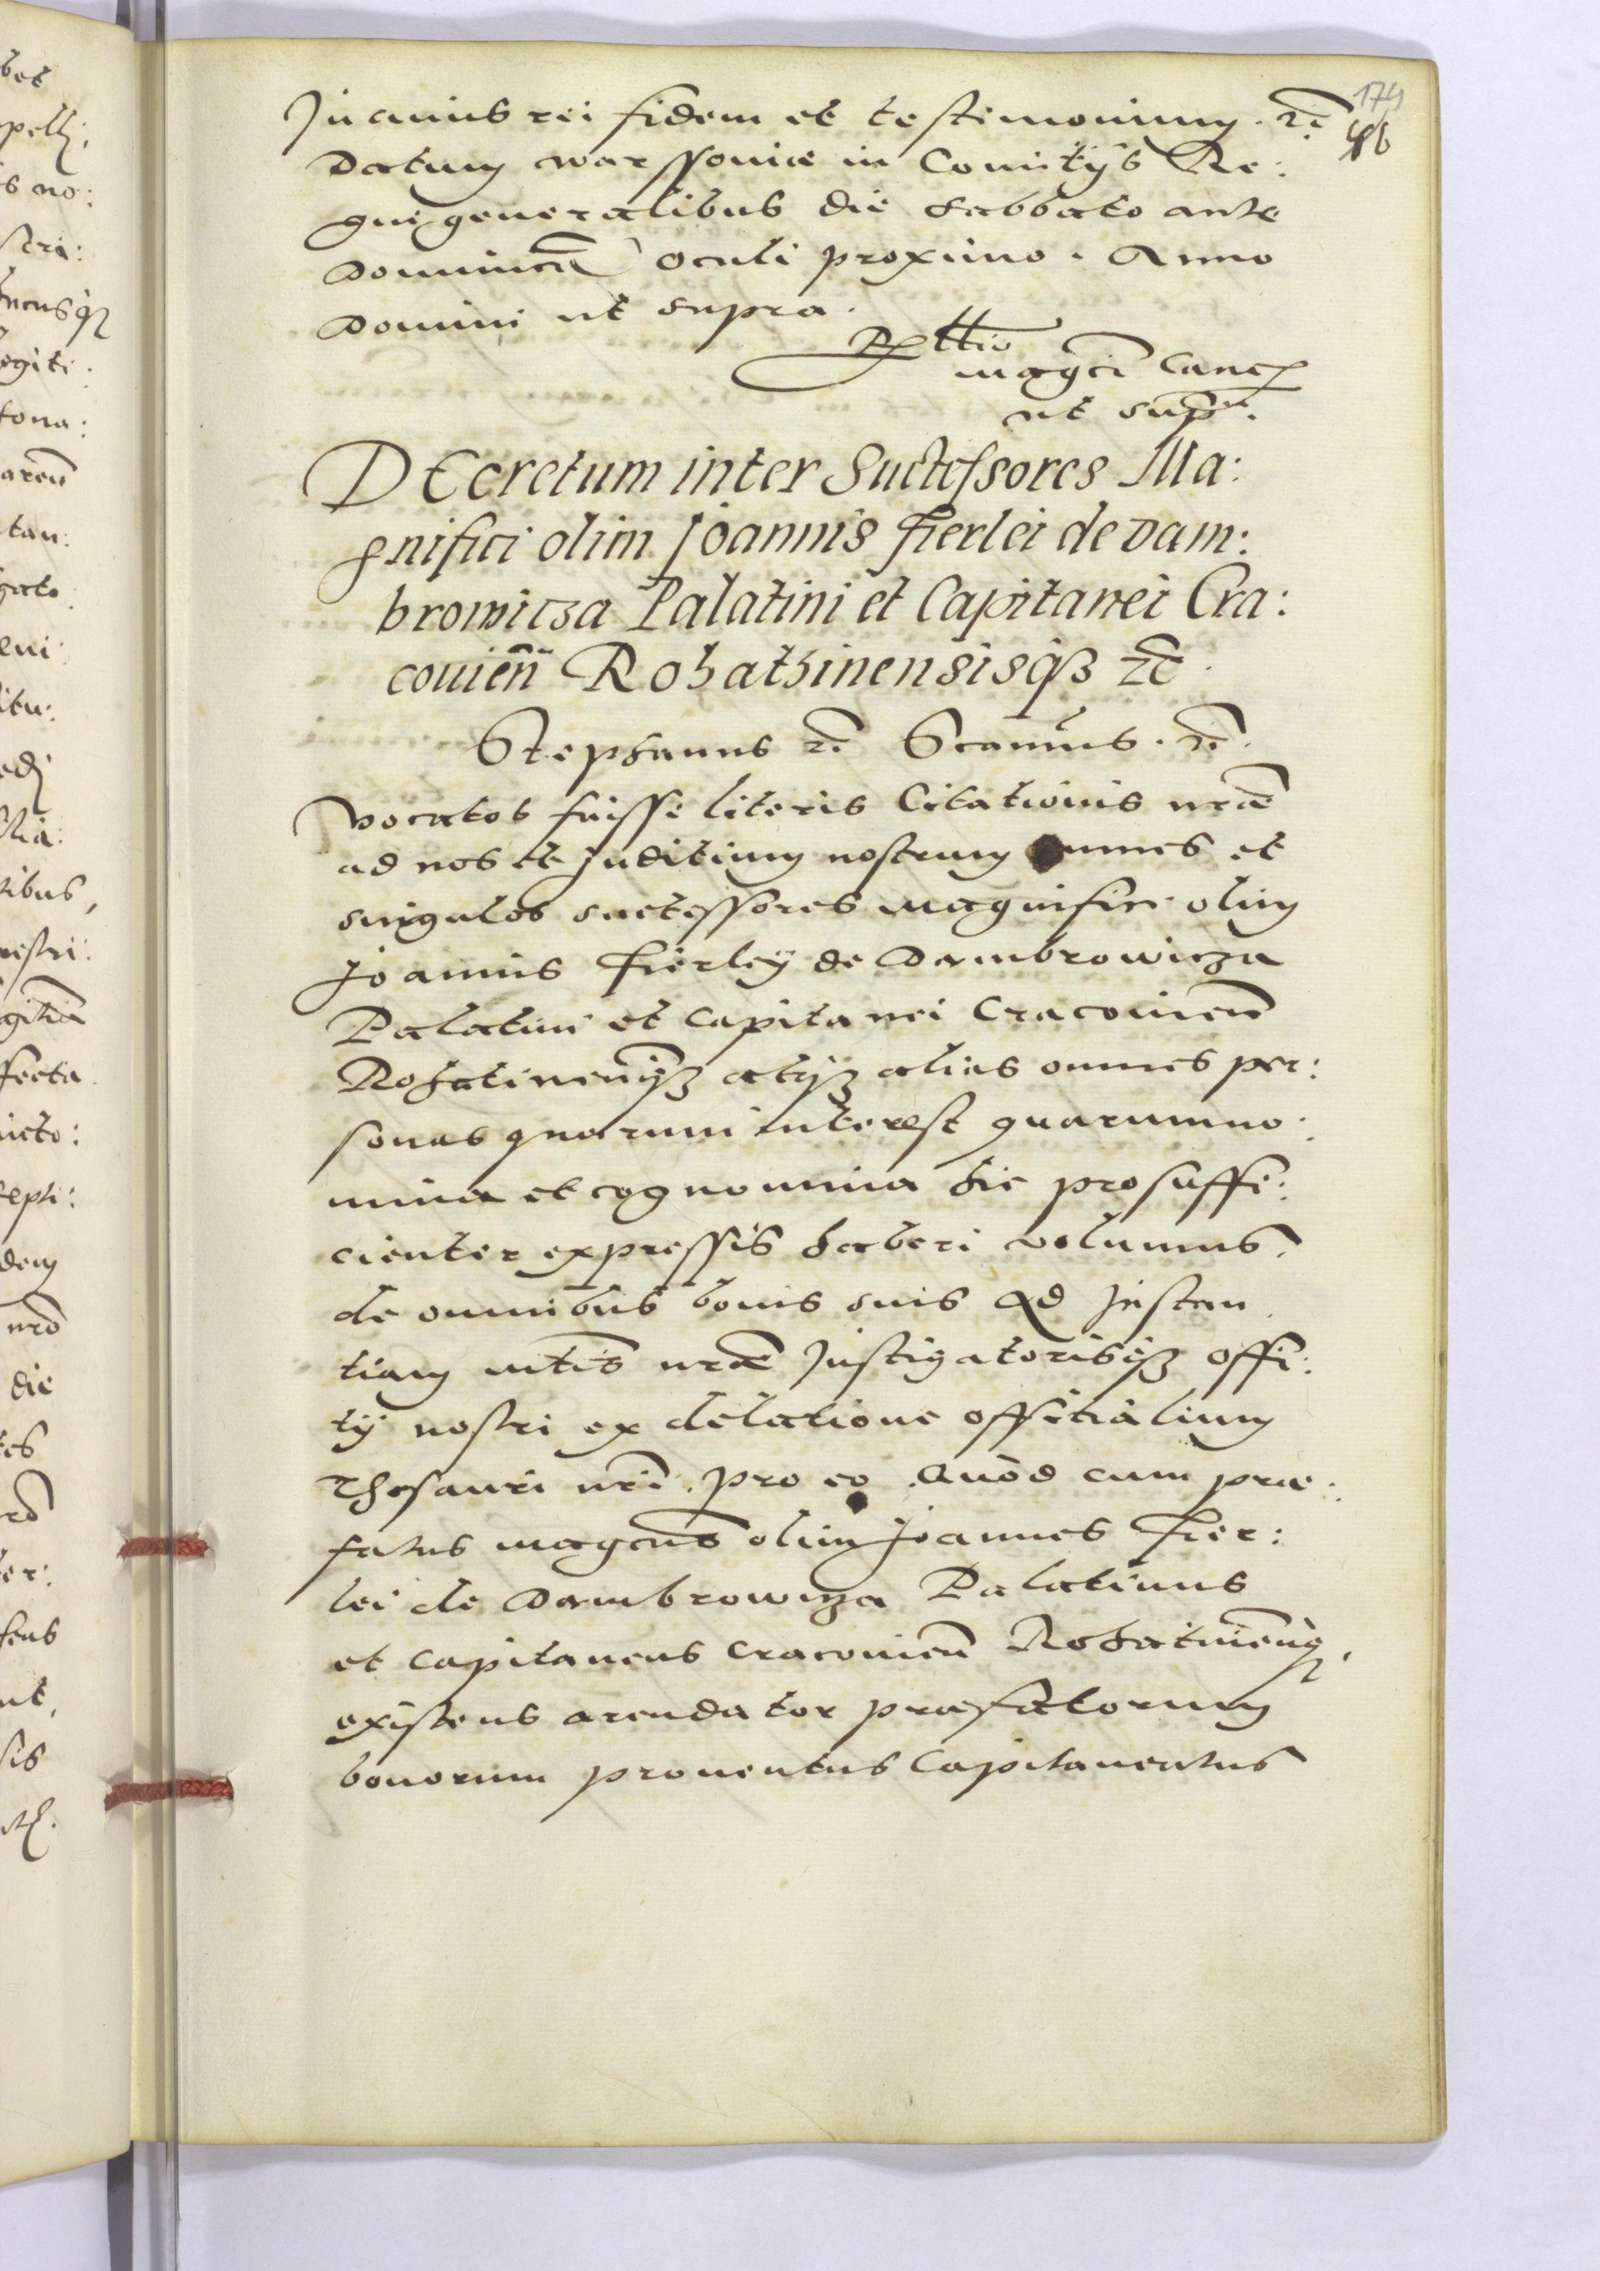 174
46
In cuius rei fidem et testimonium. rc
Datum warssouiæ in Comitijs Re:
gni generalibus die sabbato ante
Dominicā Oculi proximo. Anno
Domini ut supra.
Rttio
magci Canc
ut sup.
DEcretum inter Suctessores Ma:
gnifici olim Joannis Fierlei de Dam:
browicza Palatini et Capitanei Cra:
couien̄ Rohathinensisq3 rc.
Stephanus rc Scāmus. rc.
vocatos fuisse literis Citationis nrǣ
ad nos et Juditium nostrum omnes et
singulos suctessores magnifici olim
Joannis Fierleÿ de Dambrowicza
Palatini et Capitanei Cracouien̄
Rohatinen̄q3 atq3 alias omnes per:
sonas quarum interest quarum no:
mina et cognomina hic pro suffi:
cienter expressis haberi volumus.
de omnibus bonis suis Ad Instan
tiam nrǣ Instigatorisq3 offi:
tij nostri ex delatione offitialium
Thesauri nrī. pro eo Quòd cum præ:
fatus magcus olim Joannes Fier:
lei de Dambrowicza Palatinus
et Capitaneus Cracouien̄ Rohatinen̄q3
existens arendator præfatorum
bonorum prouentus Capitaneatus
bet
pell;
s no:
egiti.
fona:
tan:
tibus,
fecta
die